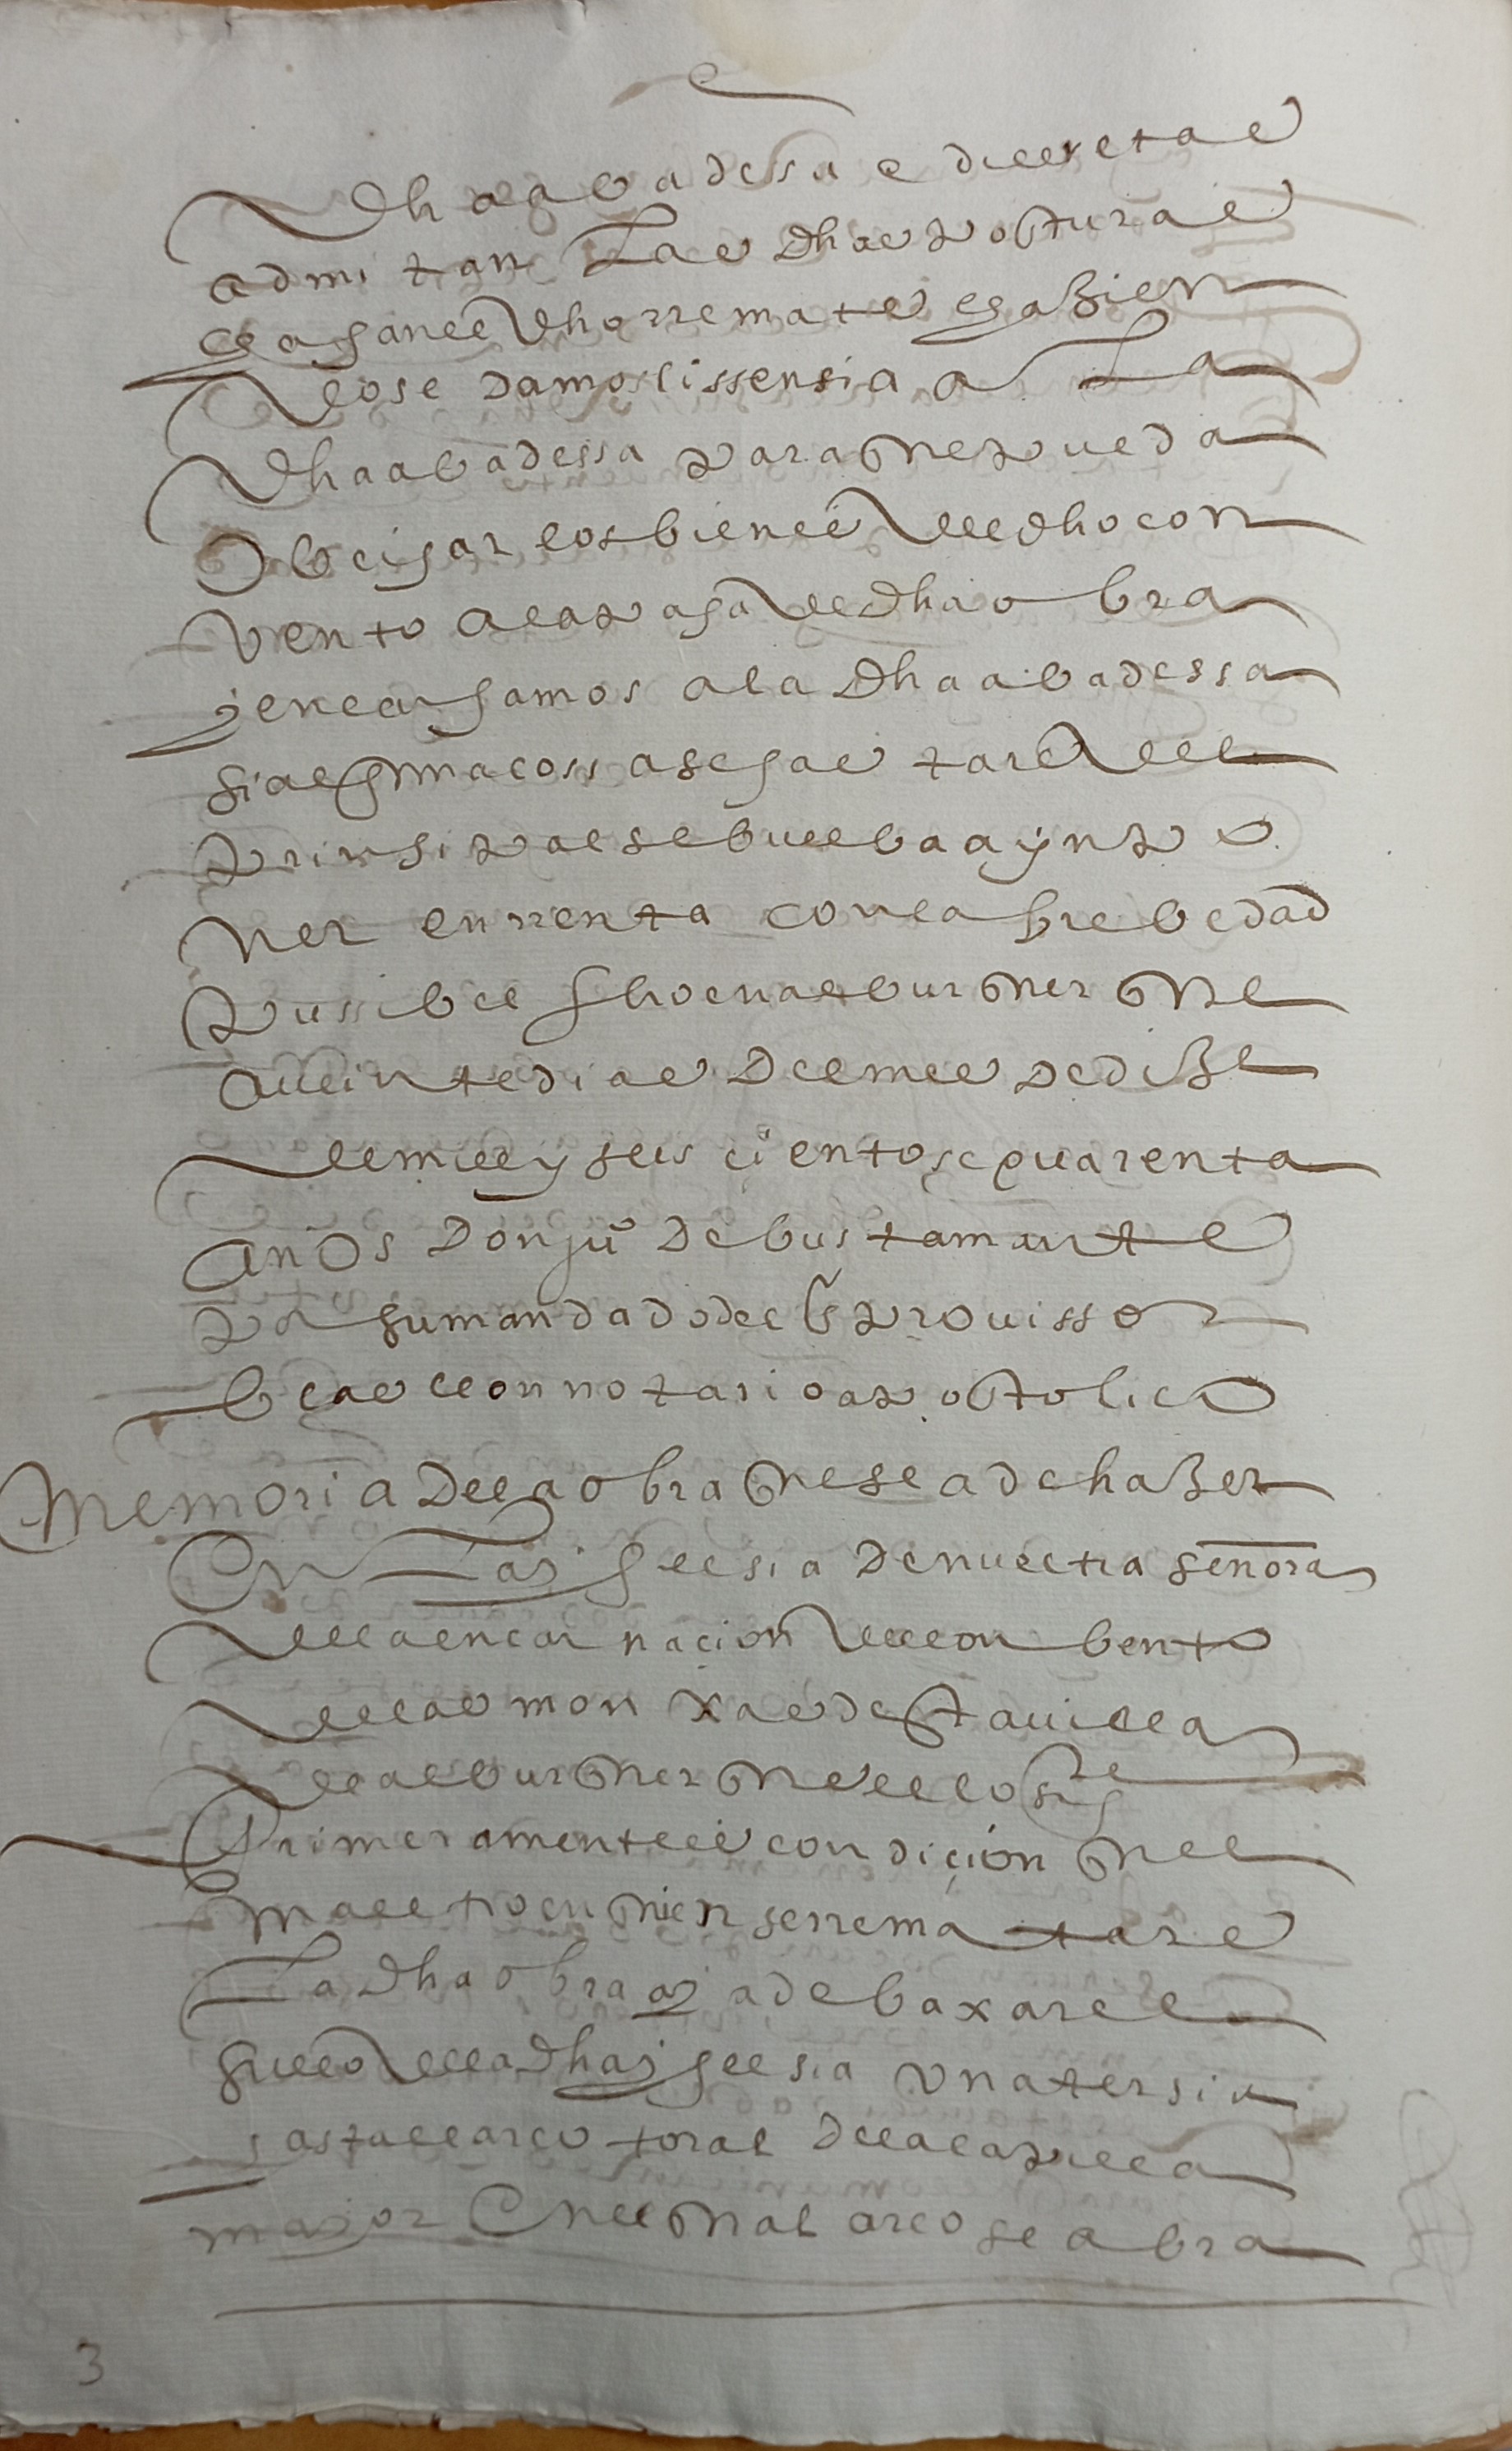 dha abadesa e diccretas
admitan Las dhas posturas
e agan el dho rremate e gaBien
dolose damos lissensia a La
dha abadessa para que pueda
obligar los bienes del dho con
vento a la paga de dha obra
y encargamos a la dha abadessa
si alguna cossa se gastare del
prinsipal se buelba a ynpo
ner en rrenta con la brebedad
pussible fho en alburquerque
a veinte dias del mes de diSie
del mill y seiscientos e quarenta
años Don ju° de bustamante
por su mandado del sr provissor
blas leon notario apostolico
Memoria de la obra que se a de haSer
En La yglesia de nuestra señora
de la encarnacion del conbento
de las monxas de esta villa
de alburquerque es lo sigte
Primeramente es condicion que el
maestro en quien se rrematare
La dha obra aya de baxar el
suelo de la dha yglesia una tersia
asta el arco toral de la capilla
mayor En el qual arco se abra
3